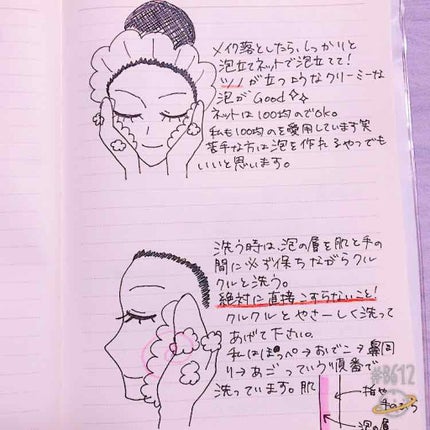 メイク落としたら、しっかりと
泡立てネットで泡立てて!
ツノが立つようなクリーミーな
泡がGood✧✧
ネットは100均のでOK。
私も100均のを愛用しています笑
苦手な方は泡を作れるやつでも
いいと思います。
洗う時は、泡の層を肌と手の
間に必ず保ちながらクル
クルと洗う。
絶対に直接こすらないこと!
クルクルとやさーしく洗って
あげて下さい。
私はほっぺ→おでこ→鼻回
り→あごっていう順番で
洗っています。肌
指や
手のひら
泡の層
#B612